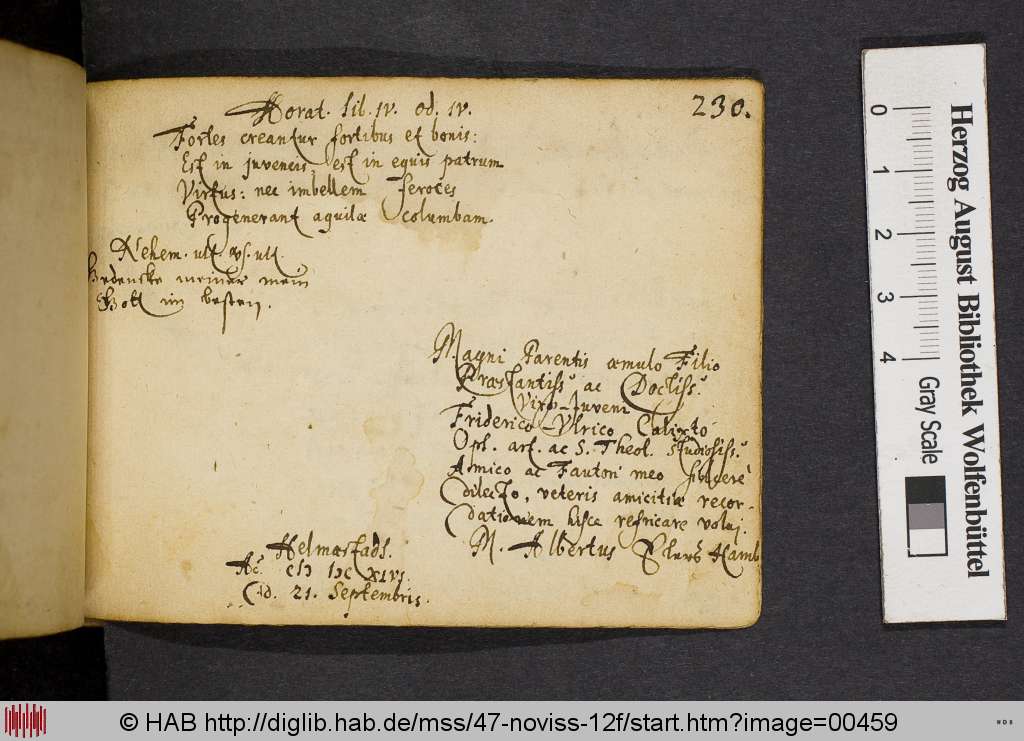 230.
Horat. lib. IV. od. IV.
Fortes creantur fortibus et bonis:
Est in juvencis, est in equis patrum
Virtus: nec imbellem feroces
Progenerant aquilæ columbam.
Nehem. ult. vs. ult.
Gedencke meiner mein
Gott im besten.
Magni Parentis æmulo Filio
Præstantiss. ac Doctiss.
Viro-Juveni
Friderico-Ulrico Calixto
Opt. art. ac S. Theol. Studiosiss.
Amico ac Fautori meo sincerè
dilecto, veteris amicitiæ recor-
dationem hisce refricare volui
M. Albertus Hamb
Helmæstadj.
Aº. XLVI.
d. 21. Septembris.
Herzog August Bibliothek Wolfenbüttel
0 1 2 3 4
Gray Scale
© HAB http://diglib.hab.de/mss/47-noviss-12f/start.htm?image=00459